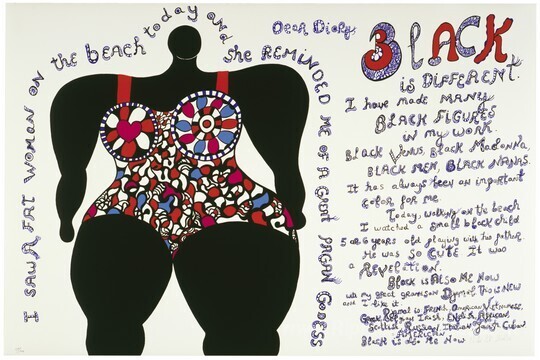 I SAW A FAT WOMAN ON the beach today and she REMINDED ME OF A GREAT PAGAN GODESS
Dear Diary
BLACK
is DIFFERENT.
I have made MANY
BLACK FIGURES
in my work.
Black Venus, Black Madonna,
BLACK MEN, BLACK NANAS.
It has always been an important
color for me.
Today, walking on the beach
I watched a small black child
5 or 6 years old playing with his father.
He was SO CUTE It was
a REVELATION.
Black is Also Me Now
with my great grandson Djamal This is NEW
and I like it.
Djamal is French, American, Vietnamese,
Greek, Irish, English, African,
Scottish, Russian, Italian, Cuban
AMERICAN
Black is Me Now